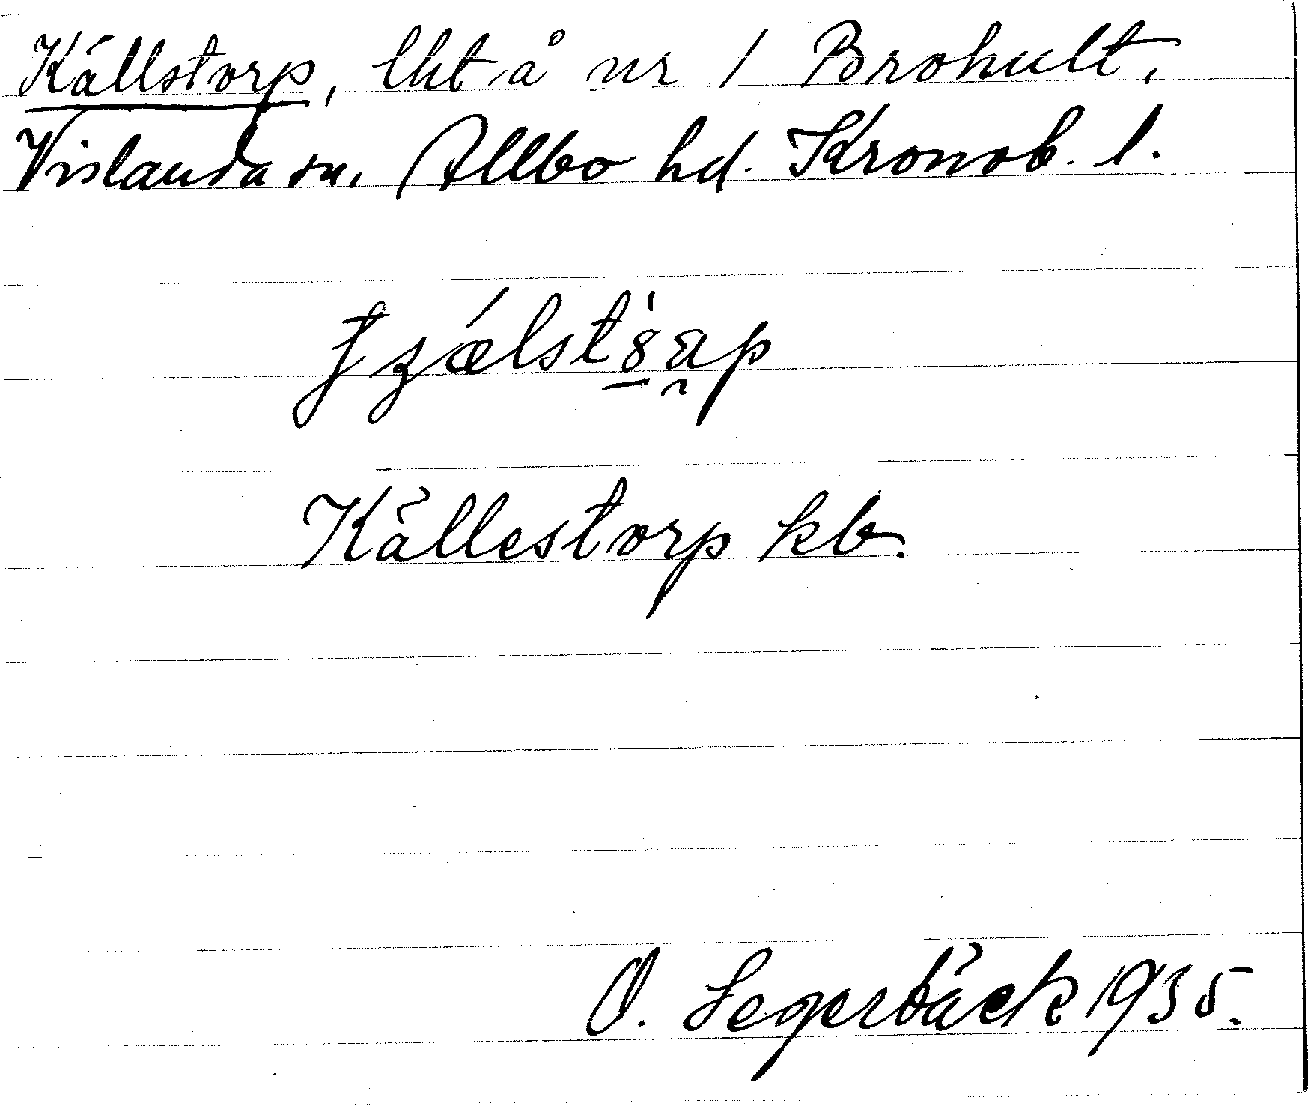 Källstorp, lht å nr 1 Brohult,
Vislanda sn. Allbo hd. Kronob. l.
Källestorp kb.
O. Segerbäck 1935.